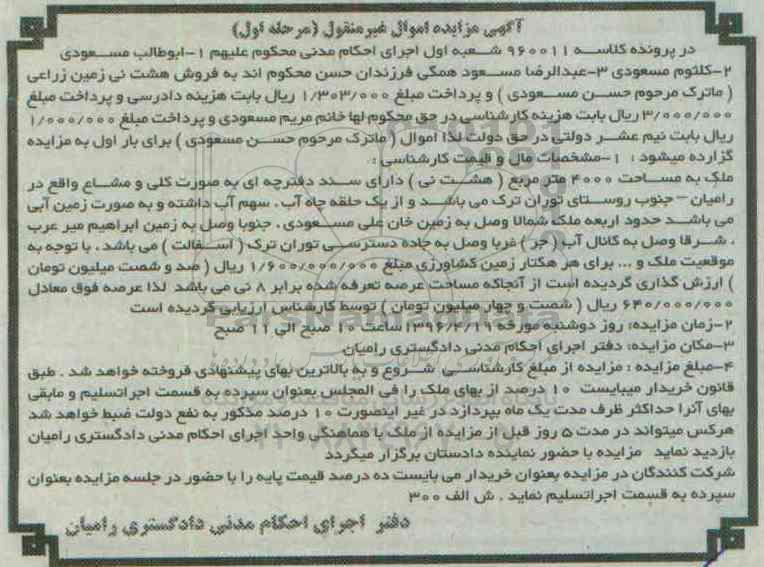 آگهی مزایده اموال غیرمنقول (مرحله اول)
در پرونده کلاسه ۹۶۰۰۱۱ شعبه اول اجرای احکام مدنی محکوم علیهم ۱-ابوطالب مسعودی
۲-کلثوم مسعودی ۳-عبدالرضا مسعود همگی فرزندان حسن محکوم اند به فروش هشت نی زمین زراعی
( ماترک مرحوم حسن مسعودی ) و پرداخت مبلغ ۱/۳۰۳/۰۰۰ ریال بابت هزینه دادرسی و پرداخت مبلغ
۳/۰۰۰/۰۰۰ ریال بابت هزینه کارشناسی در حق محکوم لها خانم مریم مسعودی و پرداخت مبلغ ۱/۰۰۰/۰۰۰
ریال بابت نیم عشر دولتی در حق دولت لذا اموال ( ماترک مرحوم حسن مسعودی ) برای بار اول به مزایده
گزارده میشود : ۱-مشخصات مال و قیمت کارشناسی :
ملک به مساحت ۴۰۰۰ متر مربع ( هشت نی ) دارای سند دفترچه ای به صورت کلی و مشاع واقع در
رامیان – جنوب روستای توران ترک می باشد و از یک حلقه چاه آب ، سهم آب داشته و به صورت زمین آبی
می باشد حدود اربعه ملک شمالا وصل به زمین خان علی مسعودی ، جنوبا وصل به زمین ابراهیم میر عرب
، شرقا وصل به کانال آب ( جر ) غربا وصل به جاده دسترسی توران ترک ( آسفالت ) می باشد ، با توجه به
موقعیت ملک و ... برای هر هکتار زمین کشاورزی مبلغ ۱/۶۰۰/۰۰۰/۰۰۰ ریال ( صد و شصت میلیون تومان
) ارزش گذاری گردیده است از آنجاکه مساحت عرصه تعرفه شده برابر ۸ نی می باشد لذا عرصه فوق معادل
۶۴۰/۰۰۰/۰۰۰ ریال ( شصت و چهار میلیون تومان ) توسط کارشناس ارزیابی گردیده است
۲-زمان مزایده: روز دوشنبه مورخه ۱۳۹۶/۴/۱۹ ساعت ۱۰ صبح الی ۱۱ صبح
۳-مکان مزایده: دفتر اجرای احکام مدنی دادگستری رامیان
۴-مبلغ مزایده : مزایده از مبلغ کارشناسی شروع و به بالاترین بهای پیشنهادی فروخته خواهد شد . طبق
قانون خریدار میبایست ۱۰ درصد از بهای ملک را فی المجلس بعنوان سپرده به قسمت اجراتسلیم و مابقی
بهای آنرا حداکثر ظرف مدت یک ماه بپردازد در غیر اینصورت ۱۰ درصد مذکور به نفع دولت ضبط خواهد شد
هرکس میتواند در مدت ۵ روز قبل از مزایده از ملک با هماهنگی واحد اجرای احکام مدنی دادگستری رامیان
بازدید نماید مزایده با حضور نماینده دادستان برگزار میگردد
شرکت کنندگان در مزایده بعنوان خریدار می بایست ده درصد قیمت پایه را با حضور در جلسه مزایده بعنوان
سپرده به قسمت اجراتسلیم نماید . ش الف ۳۰۰
دفتر اجرای احکام مدنی دادگستری رامیان